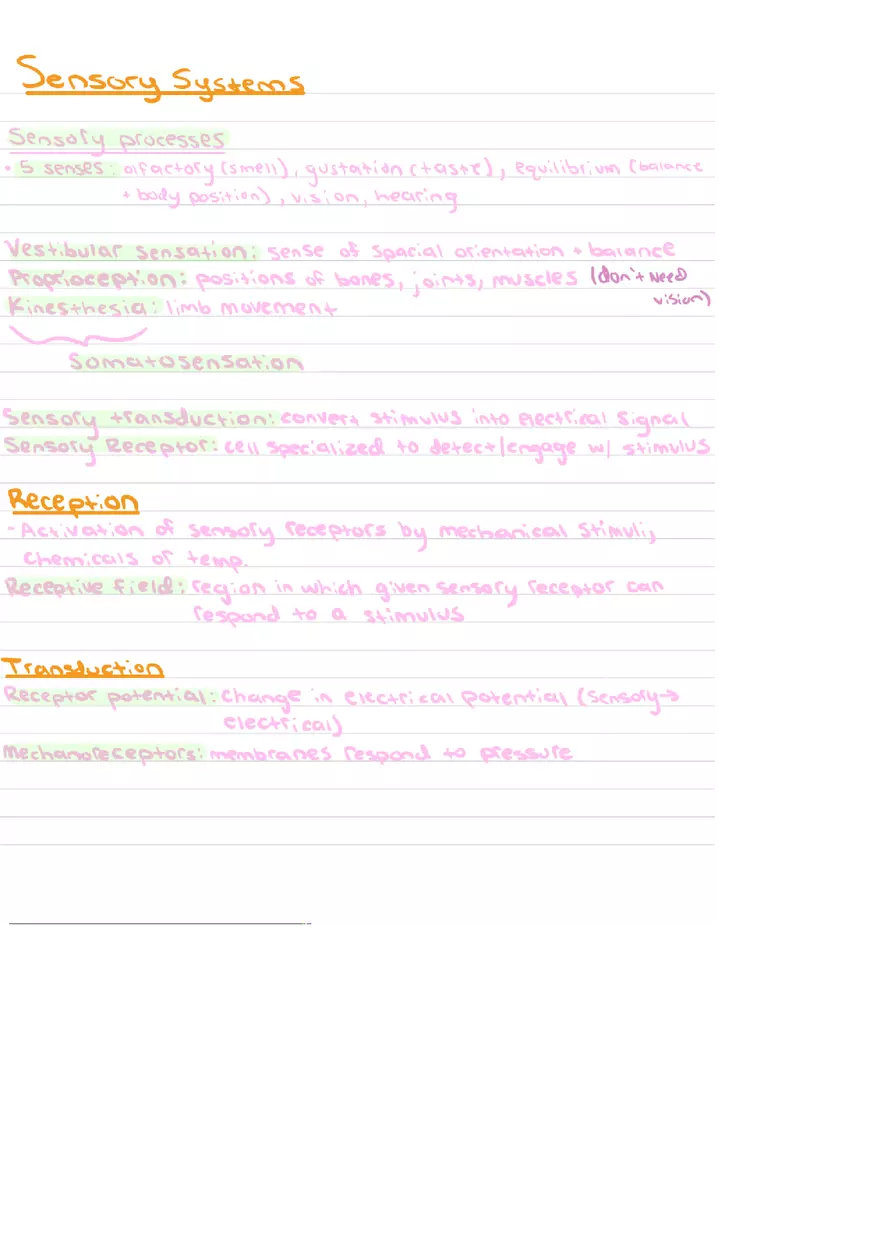 Sensory Systems
Sensory processes
• 5 senses: olfactory (smell), gustation (taste), equilibrium (balance
+ body position), vision, hearing
Vestibular sensation: sense of spacial orientation + balance
Proprioception: positions of bones, joints, muscles (don't need
vision)
Kinesthesia: limb movement
Somatosensation
Sensory transduction: convert stimulus into electrical signal
Sensory Receptor: cell specialized to detect/engage w/ stimulus
Reception
- Activation of sensory receptors by mechanical stimuli,
chemicals or temp.
Receptive field: region in which given sensory receptor can
respond to a stimulus
Transduction
Receptor potential: change in electrical potential (sensory→
electrical)
Mechanoreceptors: membranes respond to pressure